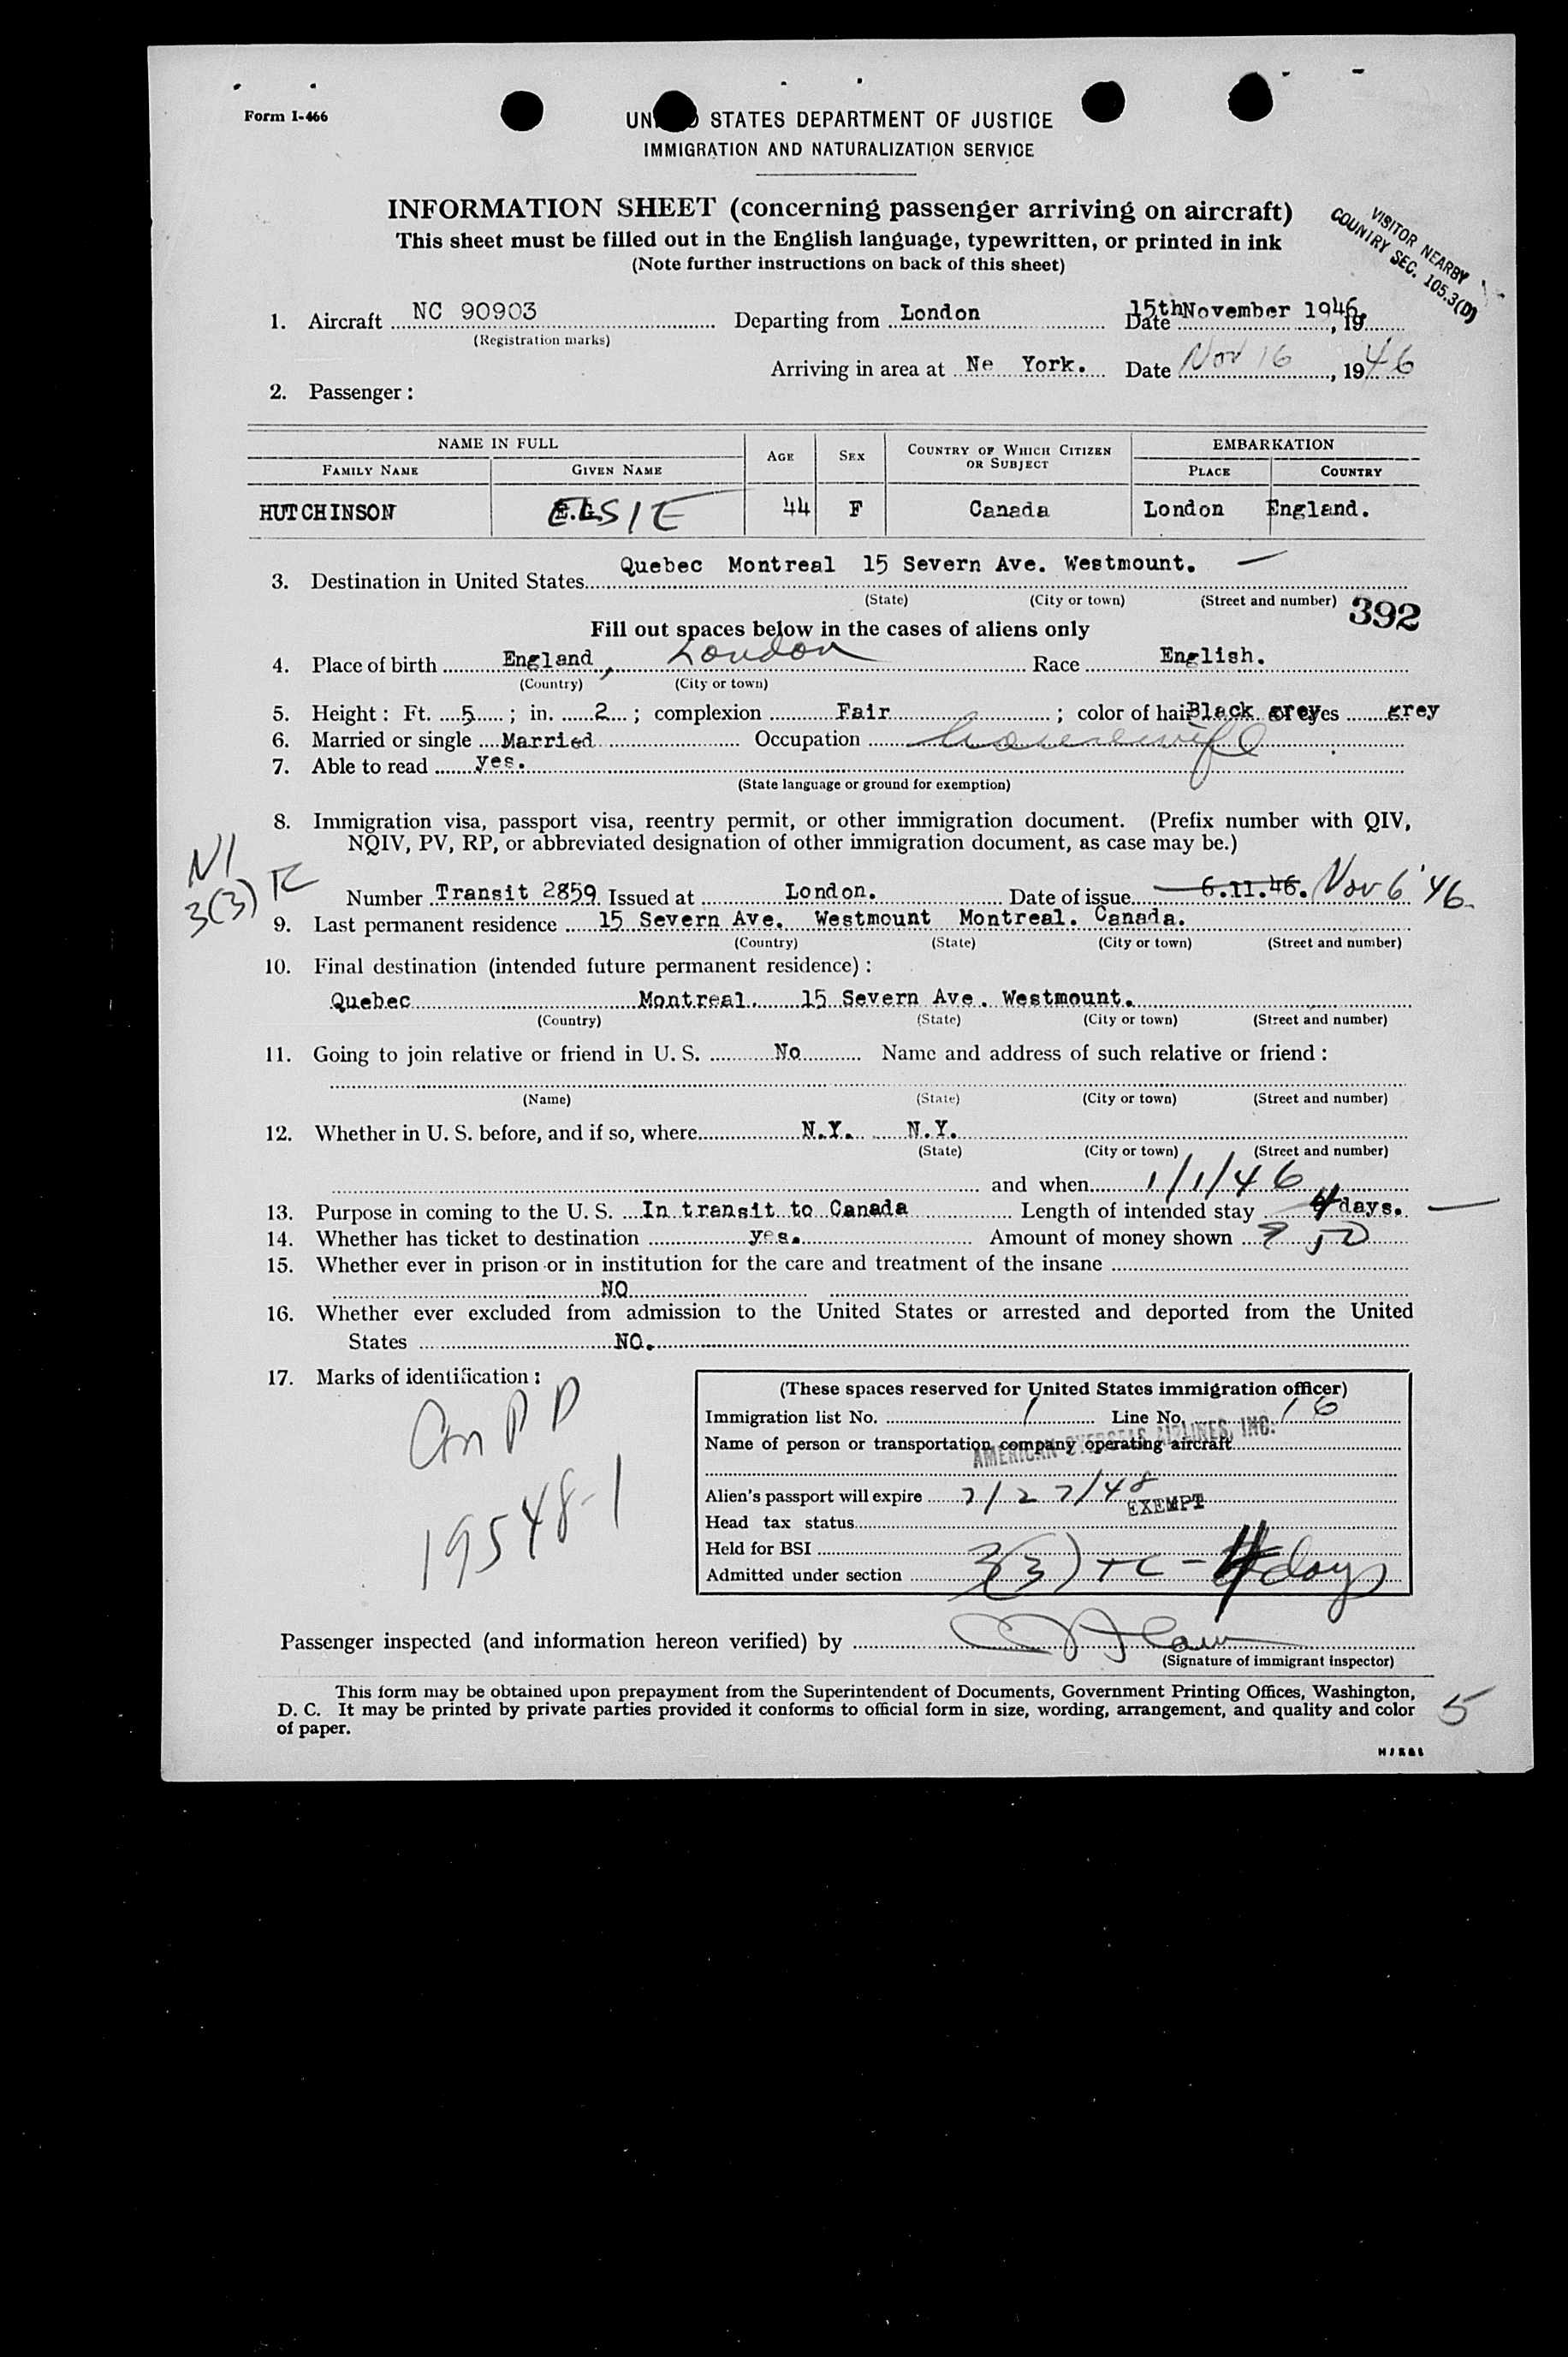 Form I-466
UNITED STATES DEPARTMENT OF JUSTICE
IMMIGRATION AND NATURALIZATION SERVICE
INFORMATION SHEET (concerning passenger arriving on aircraft)
This sheet must be filled out in the English language, typewritten, or printed in ink
(Note further instructions on back of this sheet)
VISITOR NEARBY
COUNTRY SEC. 105.3(D)
1. Aircraft NC 90903 Departing from London Date 15th November 1946, 19
(Registration marks)
Arriving in area at Ne York. Date Nov 16, 1946
2. Passenger:
NAME IN FULL AGE SEX COUNTRY OF WHICH CITIZEN OR SUBJECT EMBARKATION
FAMILY NAME GIVEN NAME PLACE COUNTRY
HUTCHINSON ELSIE 44 F Canada London England.
3. Destination in United States Quebec Montreal 15 Severn Ave. Westmount.
(State) (City or town) (Street and number) 392
Fill out spaces below in the cases of aliens only
4. Place of birth England, London Race English.
(Country) (City or town)
5. Height: Ft. 5; in. 2; complexion Fair; color of hair Black grey eyes grey
6. Married or single Married Occupation housewife
7. Able to read yes.
(State language or ground for exemption)
8. Immigration visa, passport visa, reentry permit, or other immigration document. (Prefix number with QIV,
NQIV, PV, RP, or abbreviated designation of other immigration document, as case may be.)
3(3)
Number Transit 2859 Issued at London. Date of issue 6.11.46. Nov 6 '46
9. Last permanent residence 15 Severn Ave. Westmount Montreal. Canada.
(Country) (State) (City or town) (Street and number)
10. Final destination (intended future permanent residence):
Quebec Montreal. 15 Severn Ave. Westmount.
(Country) (State) (City or town) (Street and number)
11. Going to join relative or friend in U. S. No Name and address of such relative or friend:
(Name) (State) (City or town) (Street and number)
12. Whether in U. S. before, and if so, where N.Y. N.Y.
(State) (City or town) (Street and number)
and when 1/1/46
13. Purpose in coming to the U. S. In transit to Canada Length of intended stay 4 days.
14. Whether has ticket to destination yes. Amount of money shown
15. Whether ever in prison or in institution for the care and treatment of the insane
NO
16. Whether ever excluded from admission to the United States or arrested and deported from the United
States NO.
17. Marks of identification:
Can PP
19548-1
(These spaces reserved for United States immigration officer)
Immigration list No. 1 Line No. 16
Name of person or transportation company operating aircraft
AMERICAN OVERSEAS AIRLINES, INC.
Alien's passport will expire 7/27/48
Head tax status EXEMPT
Held for BSI
Admitted under section 3(3) TC - 4 days
Passenger inspected (and information hereon verified) by
(Signature of immigrant inspector)
This form may be obtained upon prepayment from the Superintendent of Documents, Government Printing Offices, Washington,
D. C. It may be printed by private parties provided it conforms to official form in size, wording, arrangement, and quality and color
of paper.
5